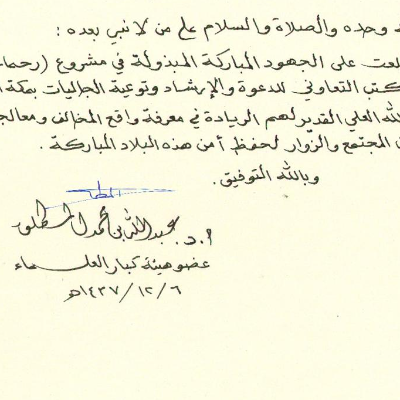 وحده والصلاة والسلام على من لا نبي بعده :
لعت على الجهود المباركة المبذولة في مشروع (رحما
كتب التعاوني للدعوة والإرشاد وتوعية الجاليات بمكة ا
الله العلي القدير لهم الريادة في معرفة واقع المخالف ومعالج
المجتمع والزوار لحفظ أمن هذه البلاد المباركة .
وبالله التوفيق .
أ . د . عبدالله بن محمد المطلق
عضو هيئة كبار العلماء
١٤٣٧/١٢/٦هـ